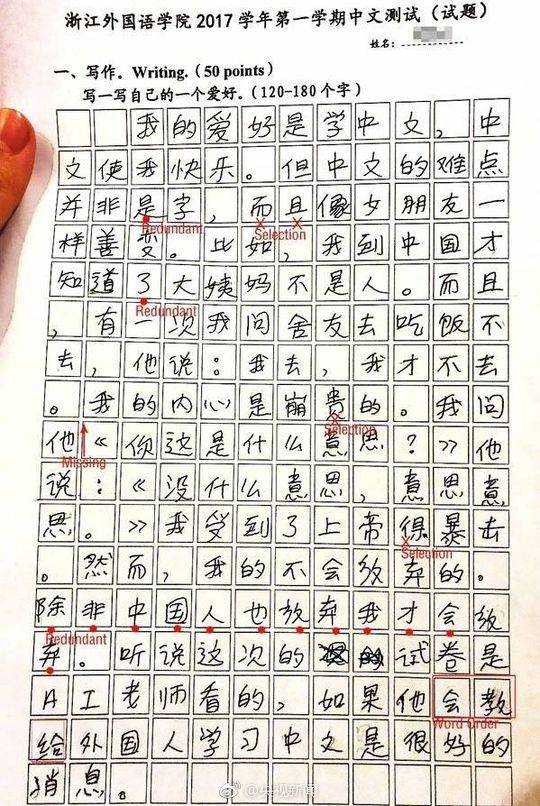 浙江外国语学院2017学年第一学期中文测试（试题）
姓名：
一、写作。Writing.（50 points）
写一写自己的一个爱好。（120-180个字）
我的爱好是学中文，中
文使我快乐。但中文的难点
并非是字，而且像女朋友一
Redundant Selection
样善变。比如，我到中国才
知道了大姨妈不是人。而且
Redundant
，有一次我问舍友去吃饭不
去，他说：我去，我才不去
。我的内心是崩贵的。我问
Selection
他《你这是什么意思？》他
Missing
说：《没什么意思，意思意
思。》我受到了上帝得暴击
Selection
。然而，我的不会放弃的。
除非中国人也放弃我才会放
Redundant
弃。听说这次的试卷是
AI老师看的，如果他会教
Word Order
给外国人学习中文是很好的
消息。
@央视新闻